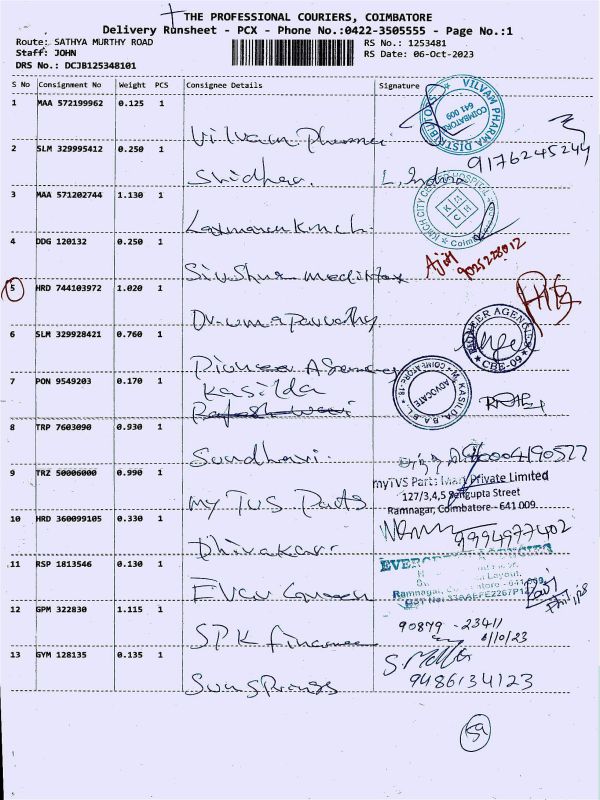 THE PROFESSIONAL COURIERS, COIMBATORE
Delivery Runsheet - PCX - Phone No.:0422-3505555 - Page No.:1
Route: SATHYA MURTHY ROAD RS No.: 1253481
Staff: JOHN RS Date: 06-Oct-2023
DRS No.: DCJB125348101
S No Consignment No Weight PCS Consignee Details Signature
1 MAA 572199962 0.125 1
Vilvam Pharma
VILVAM PHARMA DISTRIBUTORS
COIMBATORE
641 009
9176245244
2 SLM 329995412 0.250 1
Sridhar.
3 MAA 571202744 1.130 1
KMCH CITY CENTER HOSPITAL
KMCH
Coimbatore
4 DDG 120132 0.250 1
9025228012
5 HRD 744103972 1.020 1
Dr. uma parvathy
6 SLM 329928421 0.760 1
Pioneer Agency
PIONEER AGENCIES
CBE-09
7 PON 9549203 0.170 1
Kasilda
M. KASILDA, B.A.B.L.
ADVOCATE
COIMBATORE-18
8 TRP 7603090 0.930 1
Sundhari.
9 TRZ 50006000 0.990 1
my TVS Parts
myTVS Parts Mart Private Limited
127/3,4,5 Sengupta Street
Ramnagar, Coimbatore - 641 009.
10 HRD 360099105 0.330 1
Dhivakar
9994977402
11 RSP 1813546 0.130 1
Ever Green
EVERGREEN AGENCIES
Layout,
Ramnagar, Coimbatore - 641 009
12 GPM 322830 1.115 1
SPK finance
90879 - 23411
6/10/23
13 GYM 128135 0.135 1
Sun Springs
9486134123
59